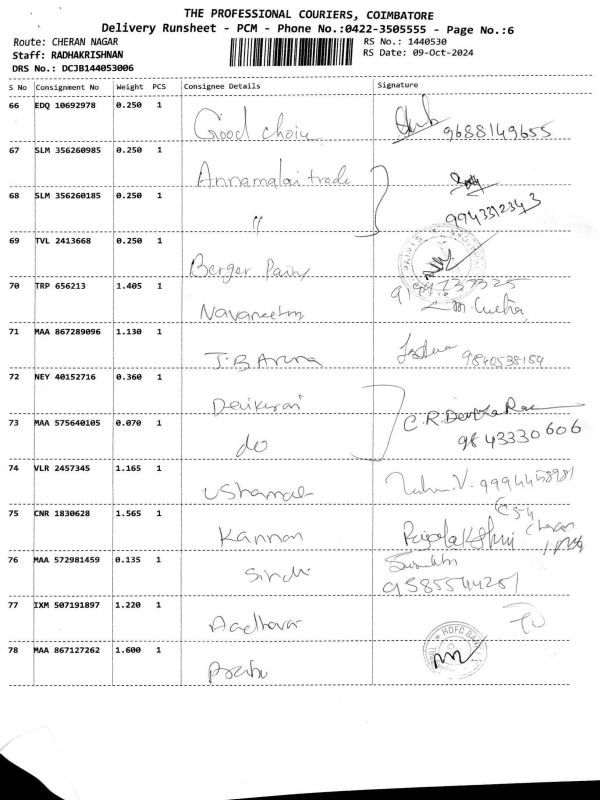 THE PROFESSIONAL COURIERS, COIMBATORE
Delivery Runsheet - PCM - Phone No.:0422-3505555 - Page No.:6
Route: CHERAN NAGAR RS No.: 1440530
Staff: RADHAKRISHNAN RS Date: 09-Oct-2024
DRS No.: DCJB144053006
S No Consignment No Weight PCS Consignee Details Signature
66 EDQ 10692978 0.250 1
Good choice 9688149655
67 SLM 356260985 0.250 1
Annamalai trade
68 SLM 356260185 0.250 1
" 9943312343
69 TVL 2413668 0.250 1
Berger Paints
70 TRP 656213 1.405 1
Navaneetha
71 MAA 867289096 1.130 1
J.B Aruna 9840538189
72 NEY 40152716 0.360 1
73 MAA 575640105 0.070 1 C.R.
do 9843330606
74 VLR 2457345 1.165 1
V. 9994458981
75 CNR 1830628 1.565 1
Kannan
76 MAA 572981459 0.135 1
Sindhi 9585544251
77 IXM 507191897 1.220 1
Aadhavar
78 MAA 867127262 1.600 1
HDFC BANK